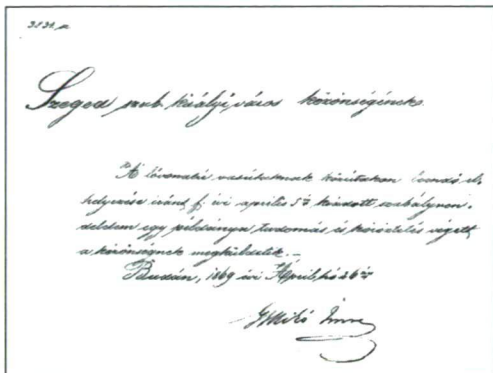 Szeged szab. királyi, város közönségének.
A lóvonatú vasutaknak közutakon leendő el-
helyezése iránt f. évi április 5én kiadott szabályren-
deletem egy példánya tudomás és közzététel végett
a közönségnek megküldetik.
Budán, 1869 évi Április hó 26án
GMikó Imre